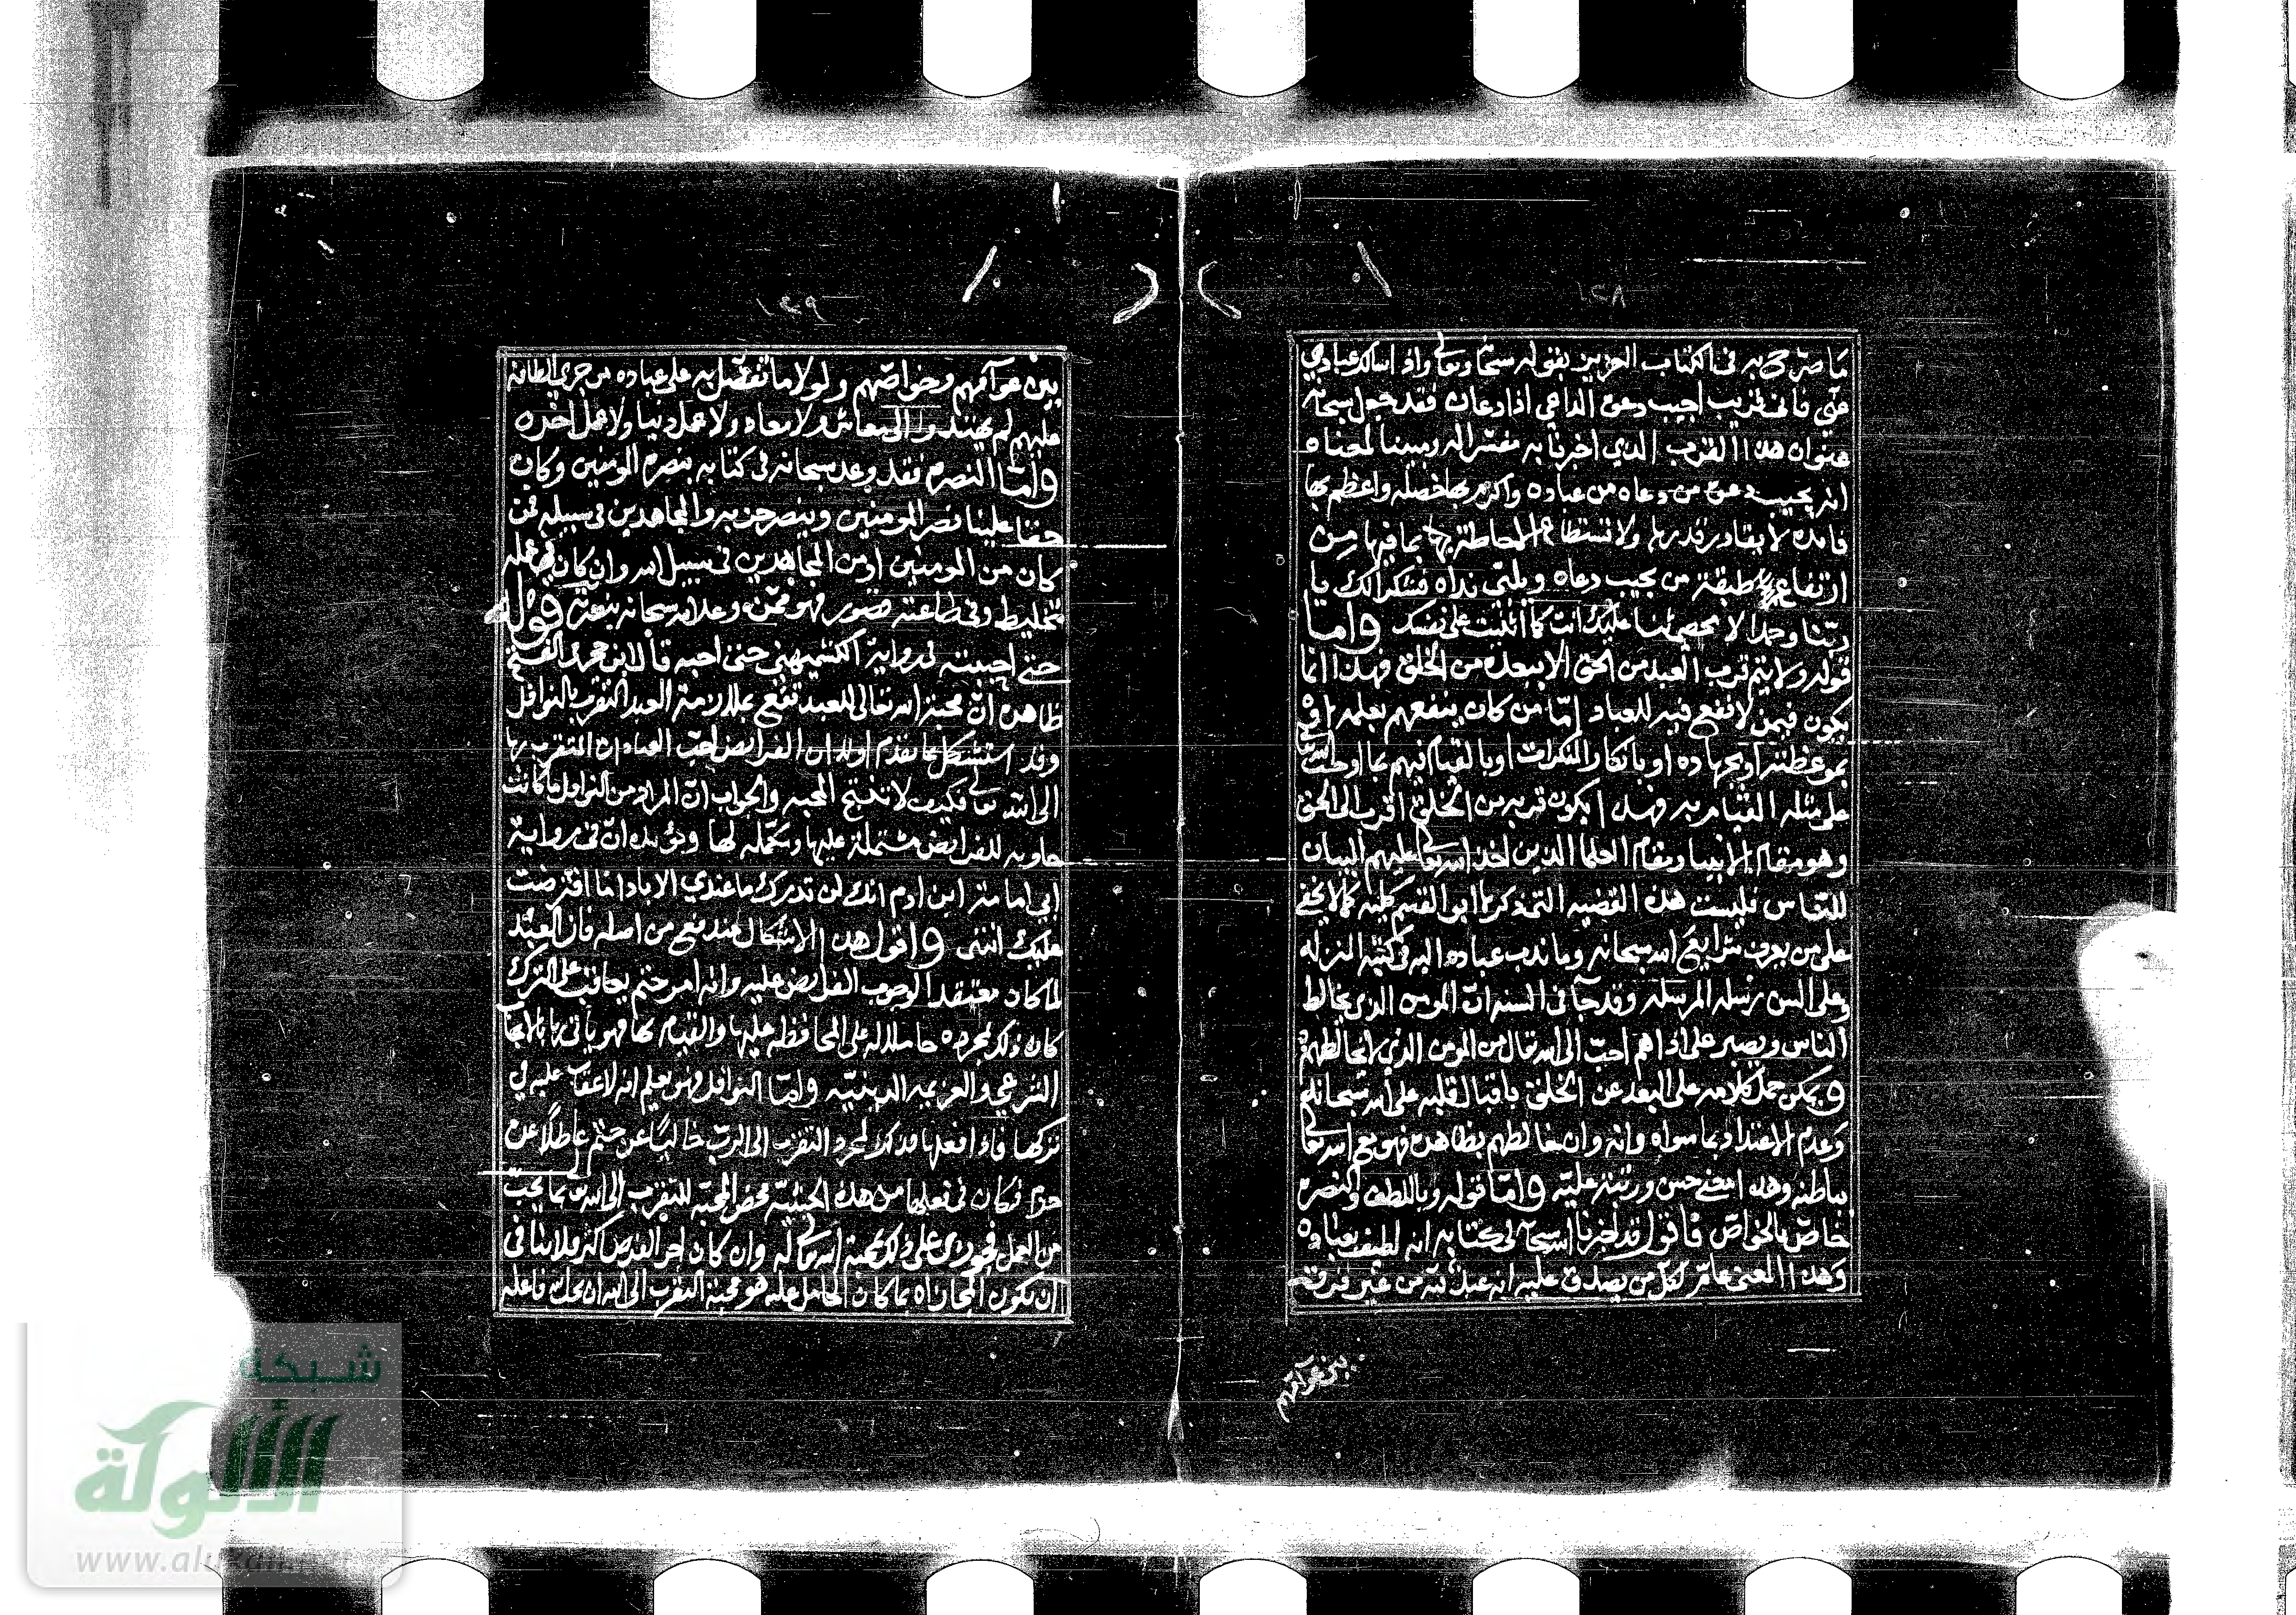 ١٤٨
ما صرح به فى الكتاب العزيز بقوله سبحانه وتعالى واذا سالك عبادي
عني فاني قريب اجيب دعوة الداعي اذا دعان فقد جعل سبحانه
عنوان هذا القرب الذي اخبرنا به مفسرا له ومبينا لمعناه
انه يجيب دعوة من دعاه من عباده واكرم بها خصله واعظم بها
فايده لا يقادر قدرها ولا تستطاع الاحاطة بها بما فيها من
ارتفاع طبقة من يجيب دعاه ويلبي نداه فشكرا لك يا
ربنا وحمدا لا نحصي ثنا عليك انت كما اثنيت على نفسك واما
قوله ولا يتم قرب العبد من الحق الا ببعده من الخلق فهذا انما
يكون فيمن لا نفع فيه للعباد اما من كان ينفعهم بعلمه او
بموعظته او بجهاده او بانكار المنكرات او بالقيام فيهم بما اوجب الله
على مثله القيام به فهذا يكون قربه من الخلق اقرب الى الحق
وهو مقام الانبيا ومقام العلما الذين اخذ الله تعالى عليهم البيان
للناس فليست هذه القضيه التي ذكرها ابو القسم كليه كما لا يخفى
على من يعرف شرايع الله سبحانه وما ندب عباده اليه في كتبه المنزله
وعلى السن رسله المرسله وقد جا فى السنه ان المومن الذي يخالط
الناس ويصبر على اذاهم احب الى الله تعالى من المومن الذي لا يخالطهم
ويمكن حمل كلامه على البعد عن الخلق باقبال قلبه على الله سبحانه
وعدم الاعتداد بما سواه وانه وان خالطهم بظاهره فهو مع الله تعالى
بباطنه وهذا معنى حسن ورتبة عليّه واما قوله وباللطف والنصره
خاص بالخواص فاقول قد اخبرنا الله سبحانه في كتابه انه لطيف بعباده
وهذا المعنى عام لكل من يصدق عليه انه عبد لله من غير فرق
بين عوامهم
١٤٩
بين عوامهم وخواصهم ولولا ما تفضل به على عباده من جري الطافه
عليهم لم يهتدوا الى معاش ولا معاد ولا عمل دنيا ولا عمل اخره
واما النصره فقد وعد سبحانه في كتابه بنصرة المومنين وكان
حقا علينا نصر المومنين وبنصر حزبه والمجاهدين فى سبيله فمن
كان من المومنين او من المجاهدين فى سبيل الله وان كان في عمله
تخليط وفى طاعته قصور فهو ممن وعد الله سبحانه بنصرته قوله
حتى احببته فى رواية الكشميهني حتى احبه قال ابن حجر في الفتح
ظاهره ان محبة الله تعالى للعبد تقع بملازمة العبد التقرب بالنوافل
وقد استشكل بما تقدم اولا ان الفرايض احب العبادات المتقرب بها
الى الله تعالى فكيف لا تنتج المحبه والجواب ان المراد من النوافل ما كانت
حاويه للفرايض مشتملة عليها ومكمله لها ويؤيده ان فى رواية
ابي امامة ابن ادم انك لن تدرك ما عندي الا باداء ما افترضت
عليك انتهى واقول هذا الاشكال مندفع من اصله فان العبد
لما كان معتقدا لوجوب الفرايض عليه وانه امر حتم يعاقب على الترك
كان ذلك بمجرده حاملا له على المحافظه عليها والقيام بها فهو ياتى بها بالايجاب
الشرعي والعزيمه الدينيّه واما النوافل فهو يعلم انه لا عقاب عليه في
تركها فاذا فعلها فذلك لمجرد التقرب الى الرب خاليا عن حتم عاطلا عن
حزم فكان فى فعلها من هذه الحيثيّة محض المحبّة للتقرب الى الله بما يحب
من العمل فجوزي على ذلك بمحبة الله تعالى له وان كان اجر الفرض اكثر فلا ينافى
ان تكون المجازاه بما كان الحامل عليه هو محبة التقرب الى الله ان يحب الله فاعله
شبكة
الألوكة